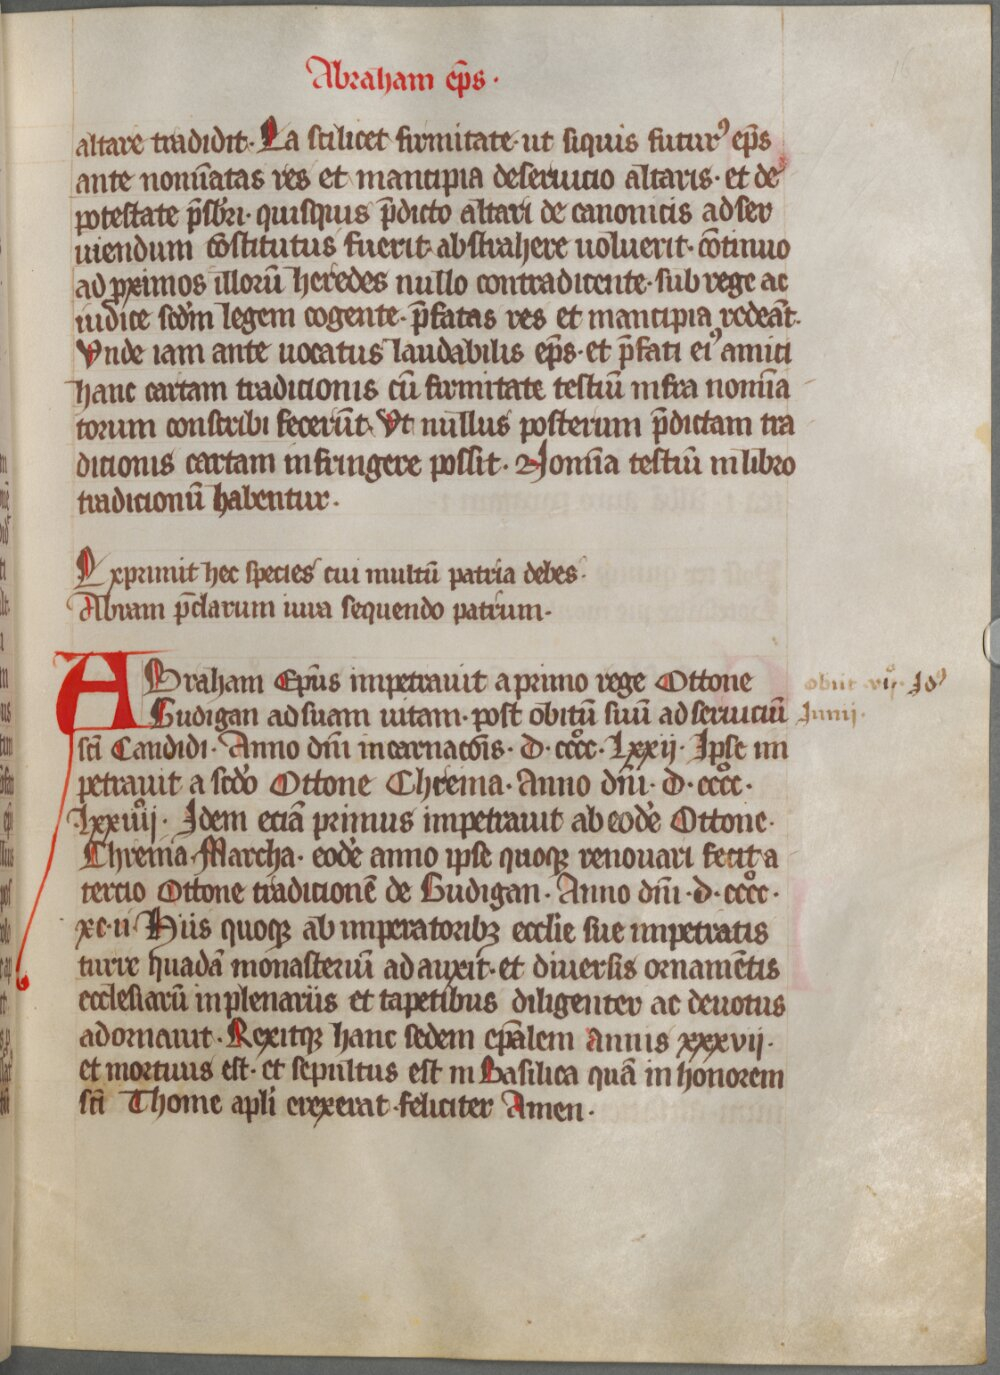 Abraham ep̄s·
altare tradidit· Ea scilicet firmitate· ut siquis futurꝰ ep̄s
ante nomīatas res et mancipia deseruicio altaris· et de
potestate p̄sbr̄i· quisquis p̄dicto altari de canonicis adser
uiendum cōstitutus fuerit· abstrahere uoluerit· cōtinuo
ad ꝓximos illorū heredes nullo contradicente· sub rege ac
iudice scd̄m legem cogente· p̄fatas res et mancipia redeāt·
Vnde iam ante uocatus laudabilis ep̄s· et p̄fati eiꝰ amici
hanc cartam tradicionis cū firmitate testiū infra nomīa
torum conscribi fecerūt· Vt nullus posterum p̄dictam tra
dicionis cartam infringere possit· Nomīa testiū in libro
tradicionū habentur·
Exprimit hec species cui multū patria debes·
Abram p̄clarum iura sequendo patrum·
ABraham Ep̄us impetrauit a primo rege Ottone
Gudigan ad suam uitam· post obitū suū ad seruiciū
obiit ·vijͦ· Idꝰ
Junij·
sc̄i Candidi· Anno dn̄i incarnac̄ōis· D· ccccͦ· Lxxij· Ipse im
petrauit a scd̄o Ottone Chreina· Anno dn̄i· D· ccccͦ·
Lxxiiijͦ· Idem eciā primus impetrauit ab eodē Ottone·
Chreina Marcha· eodē anno ipse quoqꝫ renouari fecit a
tercio Ottone tradicionē de Gudigan· Anno dn̄i· D· ccccͦ·
xc·ii· Hiis quoqꝫ ab imperatoribꝫ ecclīe sue impetratis
turre quadā monasteriū ad auxit· et diuersis ornamētis
ecclesiarū in plenariis et tapetibus diligenter ac deuotus
adornauit· Rexitqꝫ hanc sedem ep̄alem annis xxxvij·
et mortuus est· et sepultus est in Basilica quā in honorem
sc̄i Thome apl̄i erexerat· feliciter Amen·